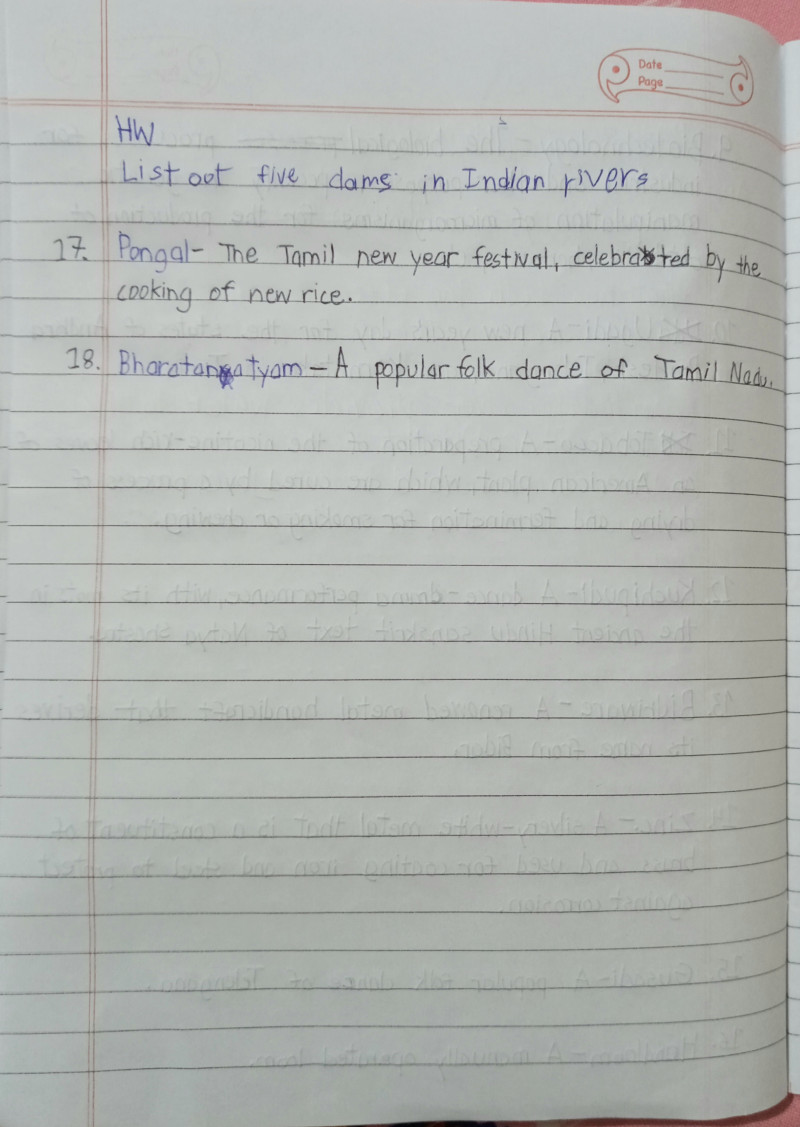 Date
Page
HW
List out five dams in Indian rivers
17. Pongal- The Tamil new year festival, celebrated by the
cooking of new rice.
18. Bharatanatyam - A popular folk dance of Tamil Nadu.